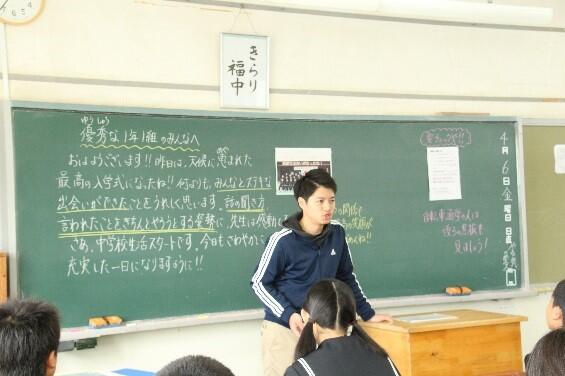 きらり
福中
ゆうしゅう
優秀な1年1組のみんなへ
おはようございます!!昨日は、天候に恵まれた
最高の入学式になったね!!何よりも、みんなとステキな
出会いができたことをうれしく思います。話の聞き方、
言われたことをきちんとやろうとする姿勢に、先生は感動
さあ、中学校生活スタートです。今日もさわやかに
充実した一日になりますように!!
自転車通学の人は
後ろの黒板を
見ましょう!
4月6日金曜日
日直
adidas